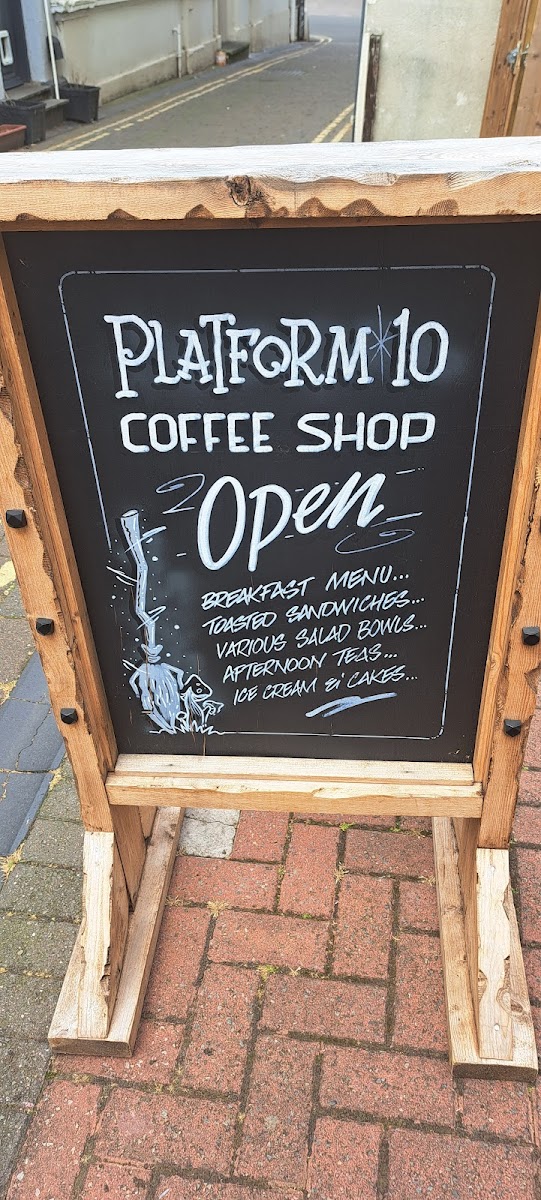 PLATFORM 10
COFFEE SHOP
Open
BREAKFAST MENU...
TOASTED SANDWICHES...
VARIOUS SALAD BOWLS...
AFTERNOON TEAS...
ICE CREAM & CAKES...